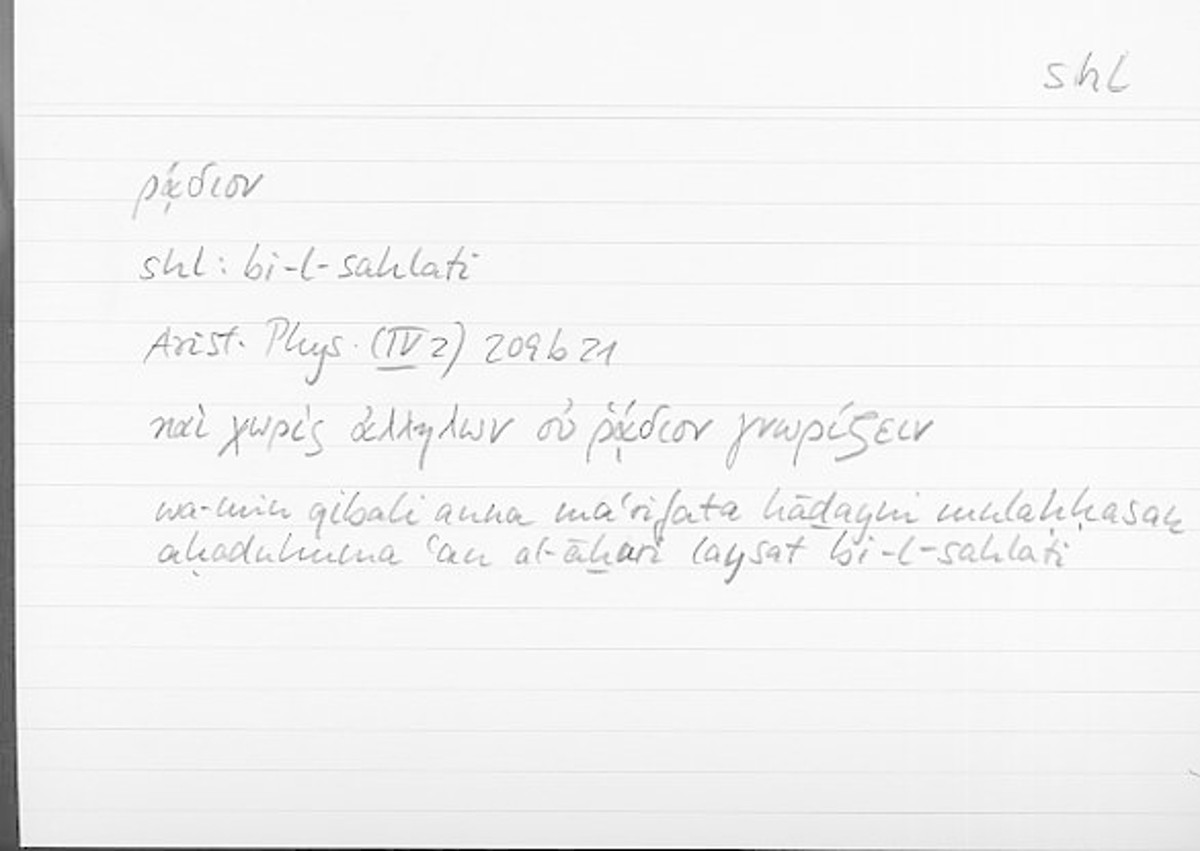 shl
ῥᾴδιον
shl: bi-l-sahlati
Arist. Phys. (IV 2) 209b21
καὶ χωρὶς ἀλλήλων οὐ ῥᾴδιον γνωρίζειν
wa-min qibali anna maʿrifata hāḏayni mulaḫḫaṣan
aḥaduhumā ʿan al-āḫari laysat bi-l-sahlati